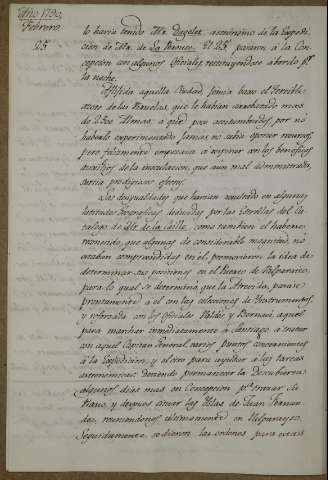 Año 1790.
Febrero
25.
lo havia tenido Mr. Dagelet, astronomo de la Expedi-
cion de Mr. de La Perouse. El 25, pasaron a la Con-
cepcion con algunos Oficiales, restituyendose abordo pr.
la noche.
Afligida aquella Ciudad, gemia baxo el terrible
azote de las Viruelas, que le havian arrebatado mas
de 2500 Almas; a que poco acostumbrados, por no
haberlo experimentado jamas, no sabia oponer recursos,
pero felizmente empezaba a respirar con los beneficos
auxilios de la inoculacion, que aun mal administrada,
surtia prodigiosos efectos.
Las desigualdades que havian resultado en algunas
latitudes Geograficas deducidas por las Estrellas del Ca-
talogo de Mr. de la Caille, como tambien el haberse
reconocido, que algunas de considerable magnitud, no
estaban comprehendidas en el, promovieron la idea de
determinar sus posiciones en el Puerto de Valparaiso;
para lo qual se determinó que la Atrevida, pasase
prontamente a el con las colecciones de Instrumentos,
y reforzada con los Oficiales Valdes y Bernaci, aquel
para marchar inmediatamente a Santiago a tratar
con aquel Capitan General varios puntos concernientes
a la Expedicion, y el otro para ayudar a las tareas
astronomicas: deviendo permanecer la Descubierta
algunos dias mas en Concepcion pa. trazar el
Plano, y despues situar las Islas de Juan Fernan-
dez, reuniendonos ultimamente en Valparayso.
Seguidamente, se dieron las ordenes para evacu